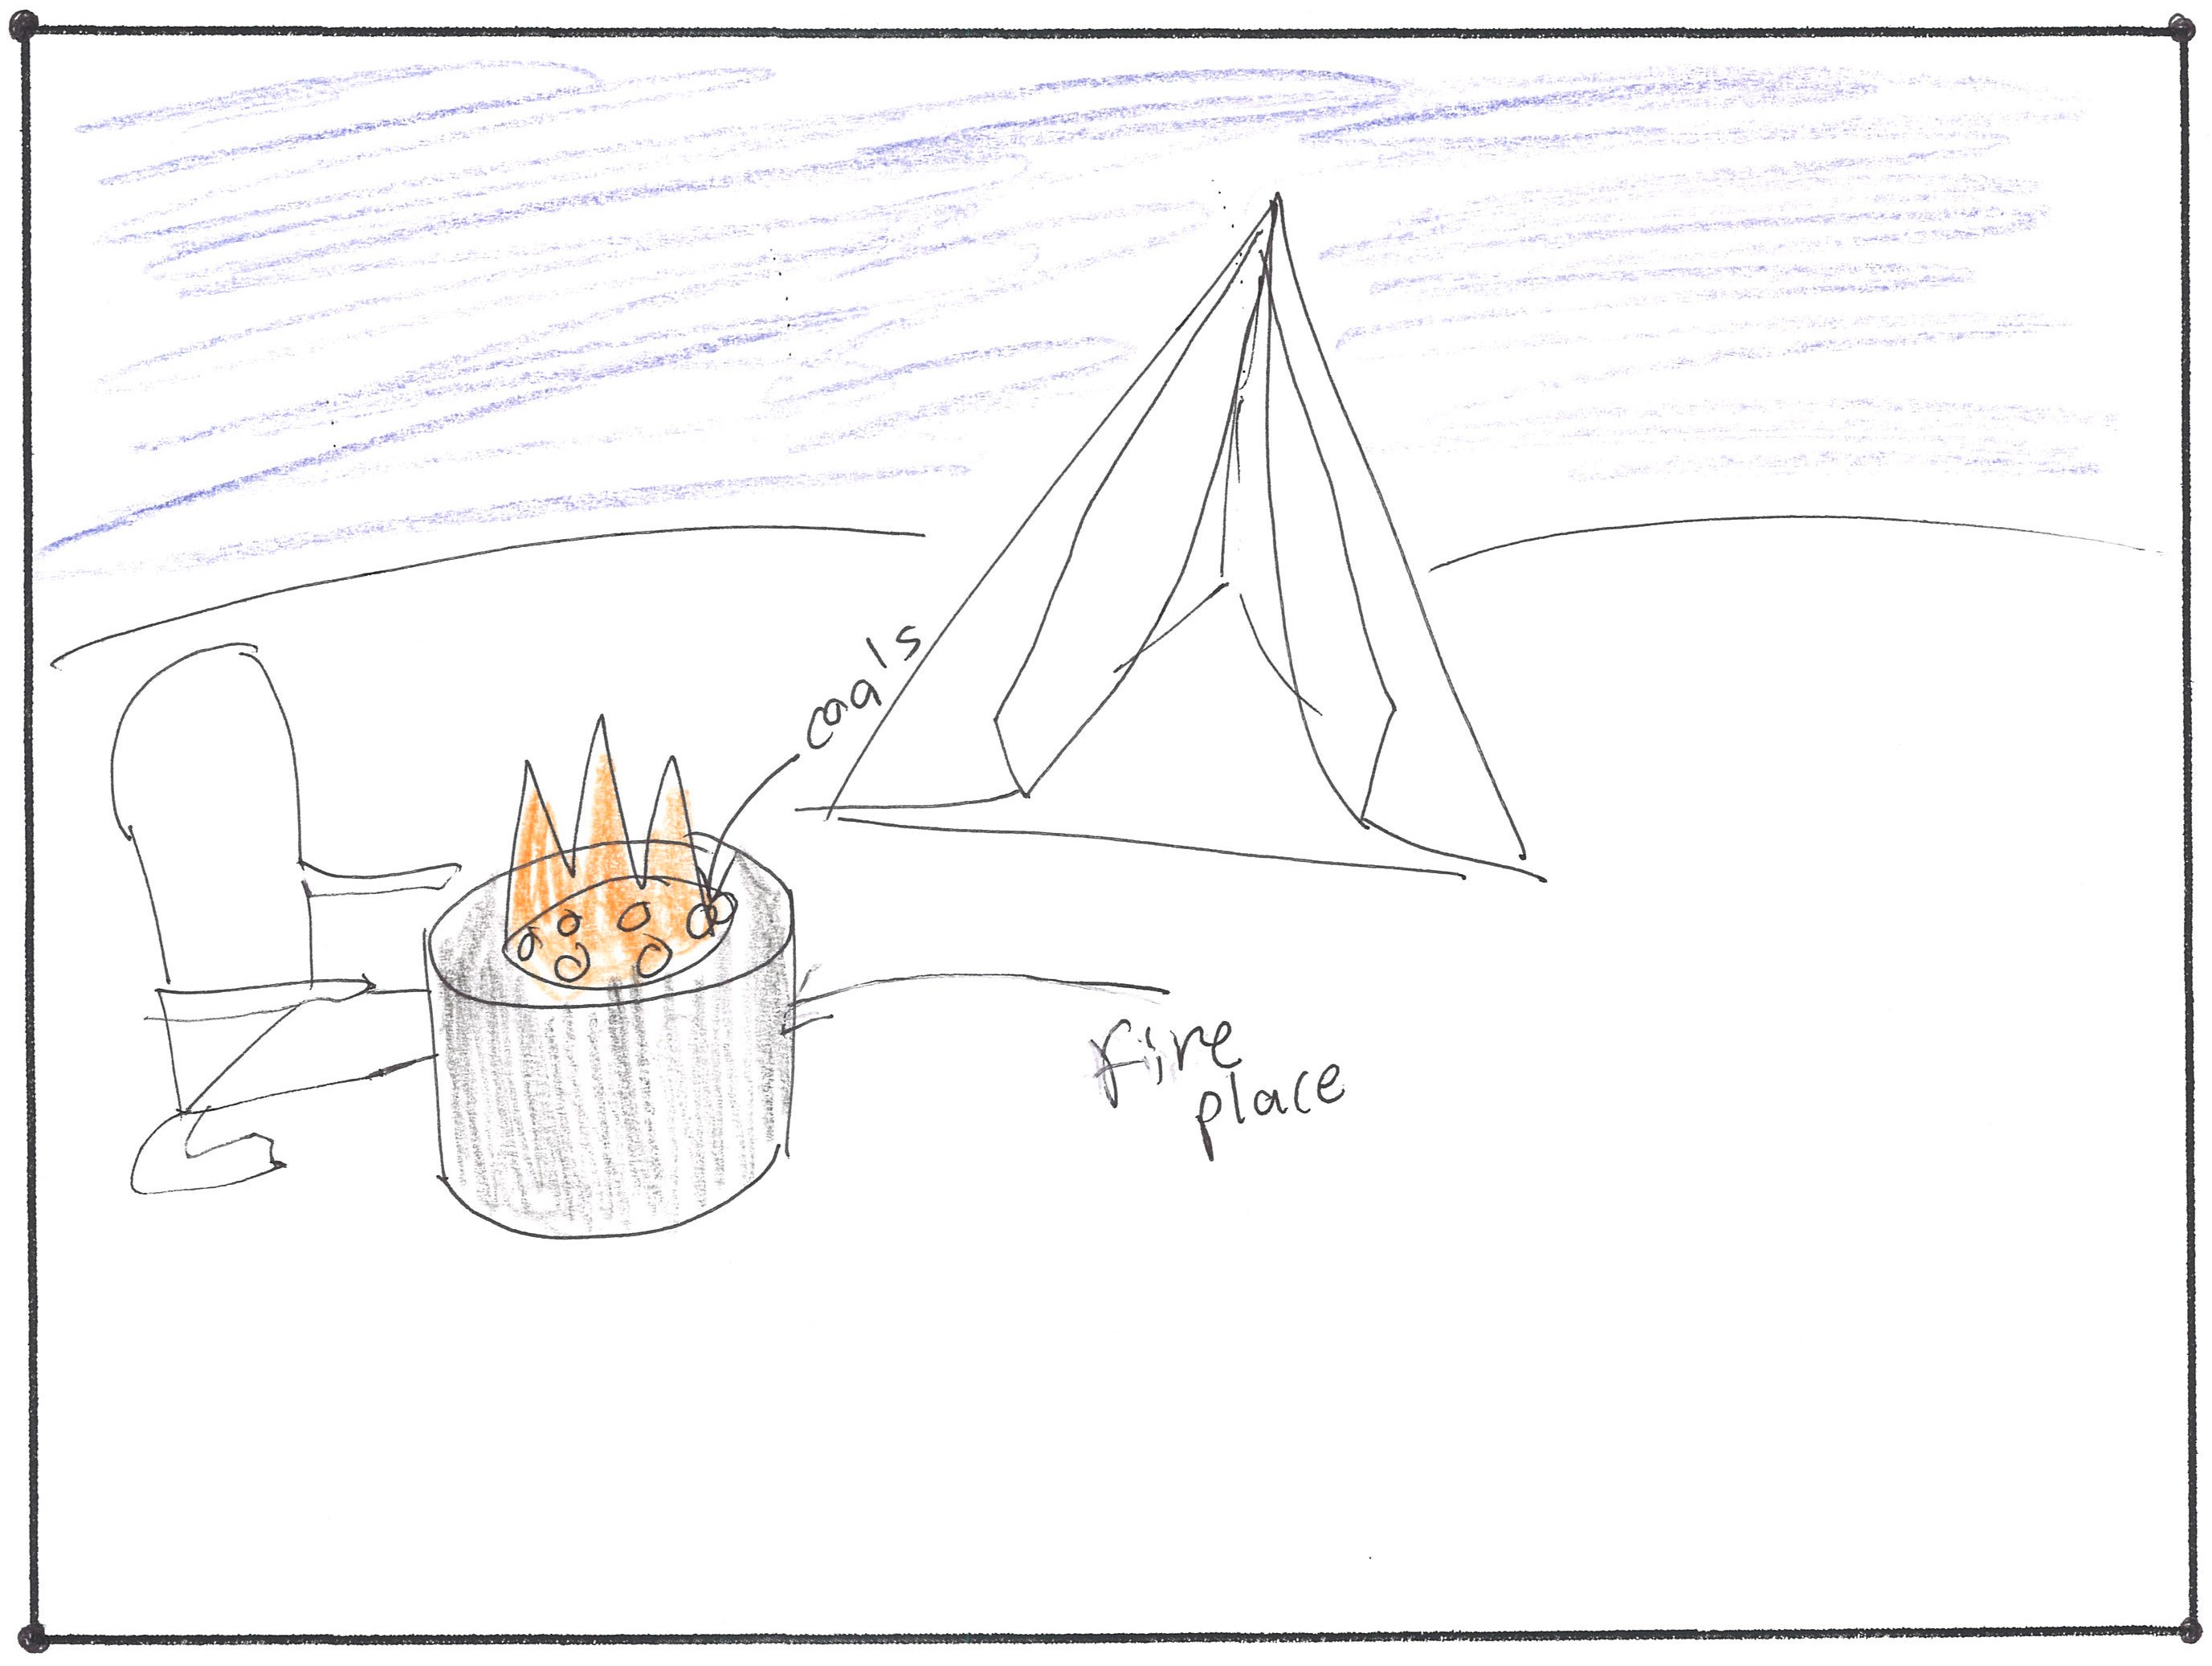 coals
fire
place